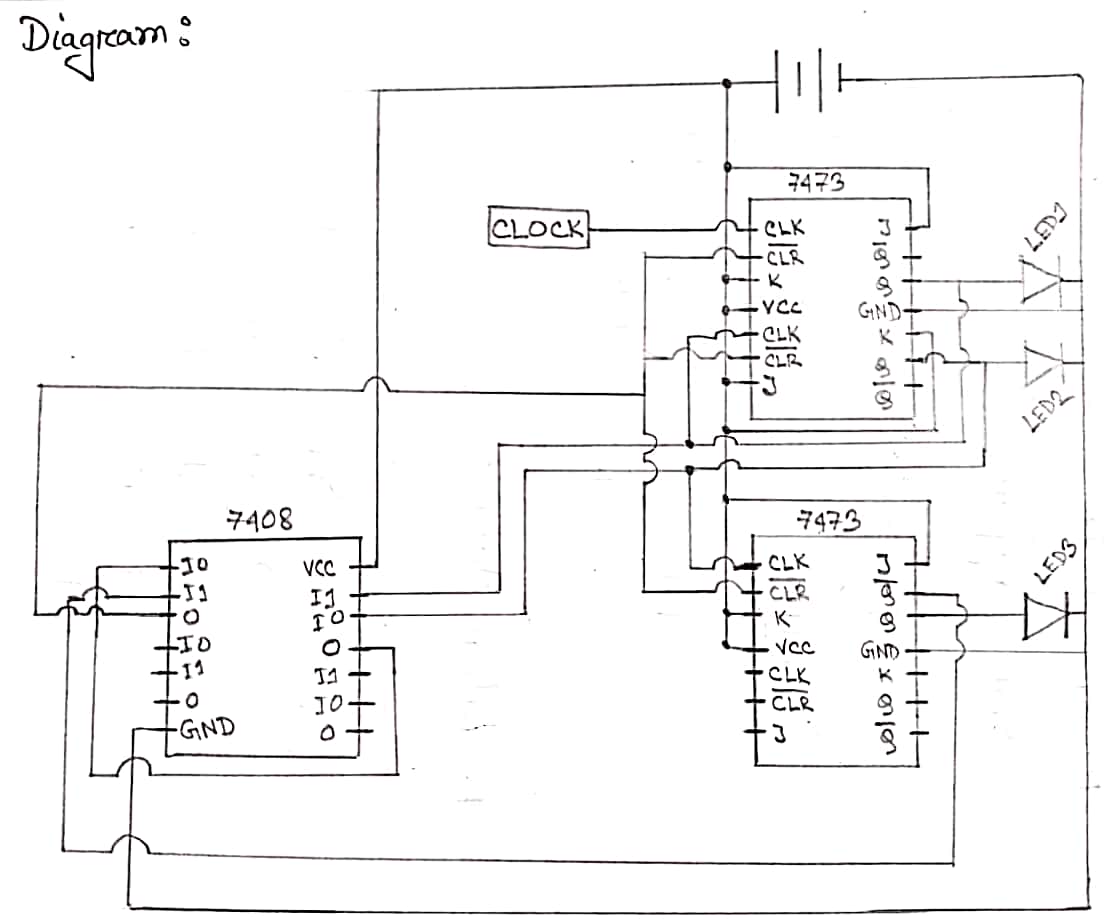 Diagram:
7473
CLOCK
CLK
C̅L̅R̅
K
VCC
CLK
C̅L̅R̅
J
J
Q̅
Q
GND
K
Q
Q̅
LED1
LED2
7408
I0
I1
O
I0
I1
O
GND
VCC
I1
I0
O
I1
I0
O
7473
CLK
C̅L̅R̅
K
VCC
CLK
C̅L̅R̅
J
J
Q̅
Q
GND
K
Q
Q̅
LED3